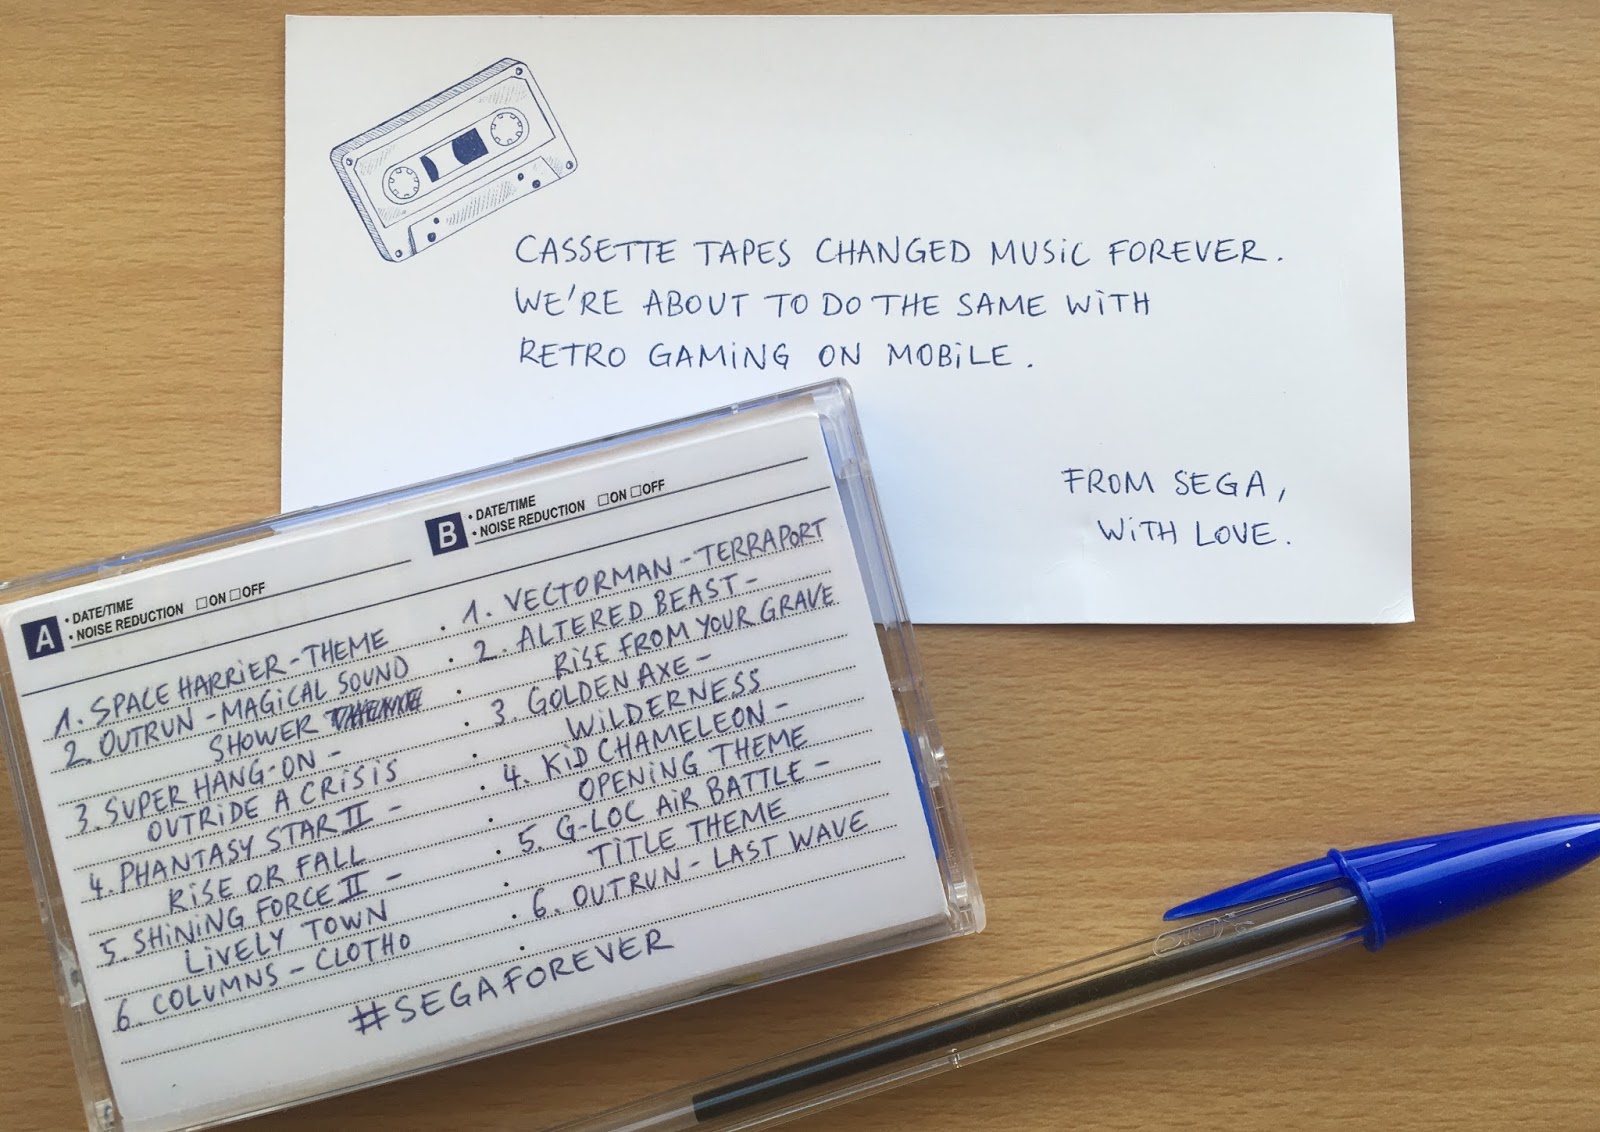 CASSETTE TAPES CHANGED MUSIC FOREVER.
WE'RE ABOUT TO DO THE SAME WITH
RETRO GAMING ON MOBILE.
FROM SEGA,
WITH LOVE.
A • DATE/TIME
• NOISE REDUCTION ☐ON ☐OFF
1. SPACE HARRIER - THEME
2. OUTRUN - MAGICAL SOUND
SHOWER
3. SUPER HANG-ON -
OUTRIDE A CRISIS
4. PHANTASY STAR II -
RISE OR FALL
5. SHINING FORCE II -
LIVELY TOWN
6. COLUMNS - CLOTHO
B • DATE/TIME
• NOISE REDUCTION ☐ON ☐OFF
1. VECTORMAN - TERRAPORT
2. ALTERED BEAST -
RISE FROM YOUR GRAVE
3. GOLDEN AXE -
WILDERNESS
4. KID CHAMELEON -
OPENING THEME
5. G-LOC AIR BATTLE -
TITLE THEME
6. OUTRUN - LAST WAVE
#SEGAFOREVER